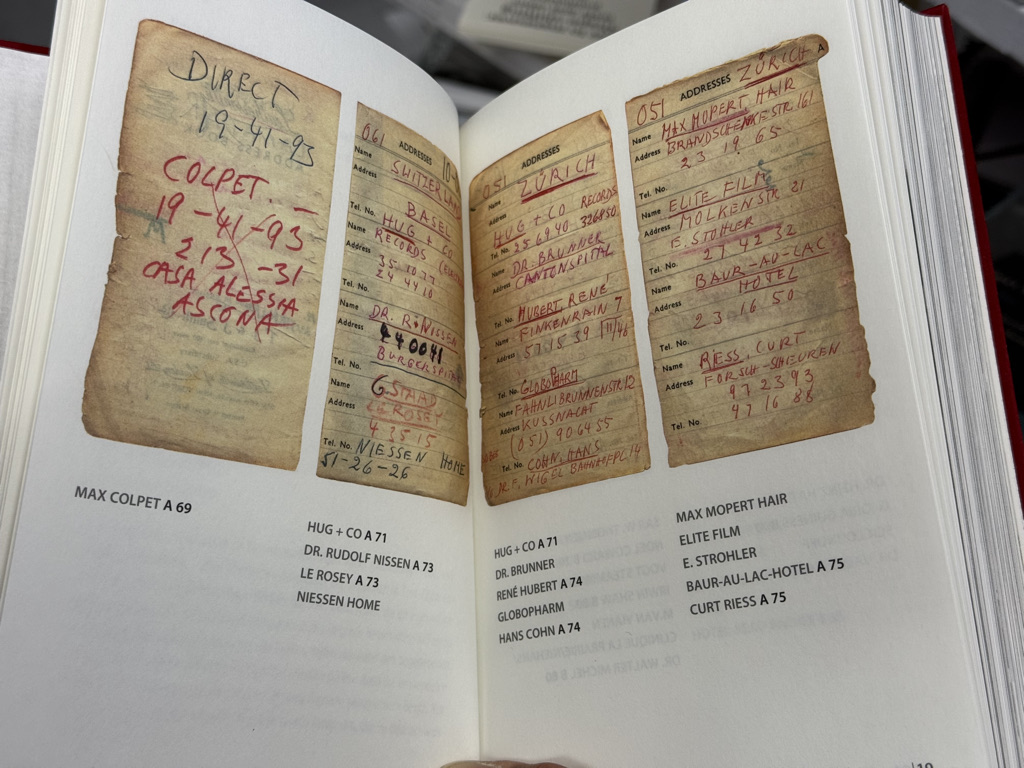 DIRECT
19-41-93
COLPET. —
19-41-93
213-31
CASA ALESSIA
ASCONA
061 ADDRESSES 10-
Name SWITZERLAND
Address
BASEL
Tel. No. HUG + CO
Name RECORDS
Address 35.10.27
24 44 10
Tel. No.
Name DR. R. NISSEN
Address 440041
BURGERSPITAL
Tel. No.
Name GSTAAD
Address LE ROSEY
4 35 15
Tel. No. NIESSEN HOME
51-26-26
051 ADDRESSES
Name ZÜRICH
Address
HUG + CO RECORDS
Tel. No. 25 69 40 - 326850
Name DR. BRUNNER
Address CANTONSPITAL
Tel. No. HUBERT, RENÉ
Name FINKENRAIN 7
Address 57 15 39
Tel. No. GLOBOPHARM
Name FAHNLIBRUNNENSTR 12
Address KUSSNACHT
(051) 90 64 55
Tel. No. COHN, HANS
DR. F. WIGEL BAHNHOFPL 14
051 ADDRESSES ZÜRICH A
Name MAX MOPERT, HAIR
Address BRANDSCHENKESTR 161
23 19 65
Tel. No.
Name ELITE FILM
Address MOLKENSTR 21
E. STOHLER
Tel. No. 27 42 32
Name BAUR-AU-LAC
Address HOTEL
23 16 50
Tel. No.
Name RIESS, CURT
Address FORSCH-SHEUREN
97 23 93
Tel. No. 47 16 88
MAX COLPET A 69
HUG + CO A 71
DR. RUDOLF NISSEN A 73
LE ROSEY A 73
NIESSEN HOME
HUG + CO A 71
DR. BRUNNER
RENÉ HUBERT A 74
GLOBOPHARM
HANS COHN A 74
MAX MOPERT HAIR
ELITE FILM
E. STROHLER
BAUR-AU-LAC-HOTEL A 75
CURT RIESS A 75
19